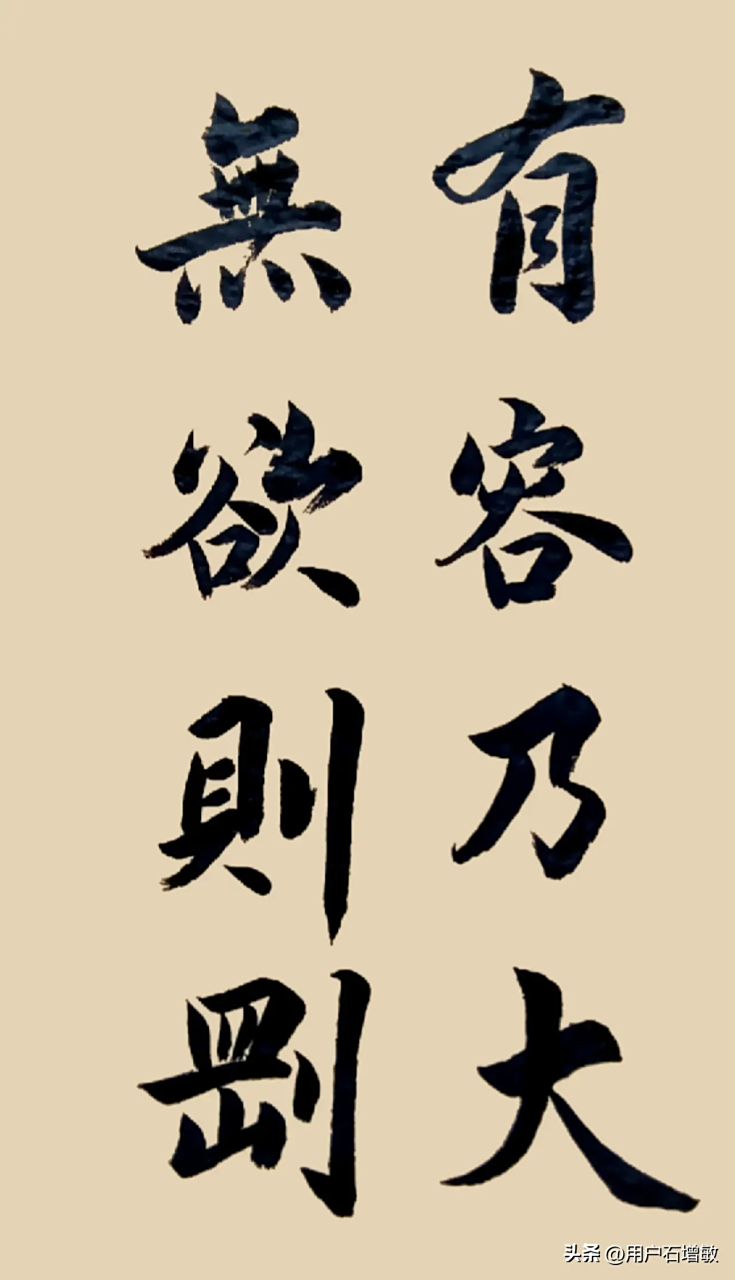 有容乃大
無欲則剛
头条 @用户石增敏